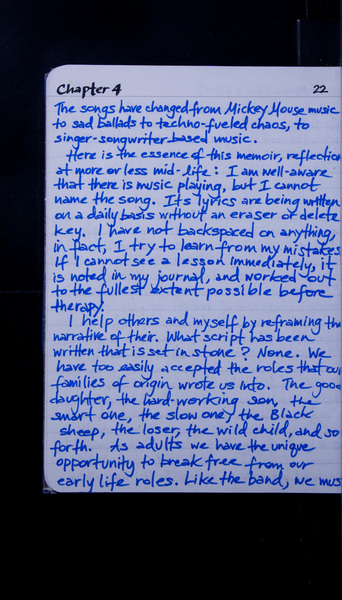 Chapter 4 22
The songs have changed from Mickey Mouse music
to sad ballads to techno-fueled chaos, to
singer-songwriter based music.
Here is the essence of this memoir, reflection
at more or less mid-life: I am well-aware
that there is music playing, but I cannot
name the song. Its lyrics are being written
on a daily basis without an eraser or delete
key. I have not backspaced on anything,
in fact, I try to learn from my mistakes.
If I cannot see a lesson immediately, it
is noted in my journal, and worked out
to the fullest extent possible before
therapy.
I help others and myself by reframing the
narrative of their. What script has been
written that is set in stone? None. We
have too easily accepted the roles that our
families of origin wrote us into. The good
daughter, the hard-working son, the
smart one, the slow one, the Black
sheep, the loser, the wild child, and so
forth. As adults we have the unique
opportunity to break free from our
early life roles. Like the band, we mus